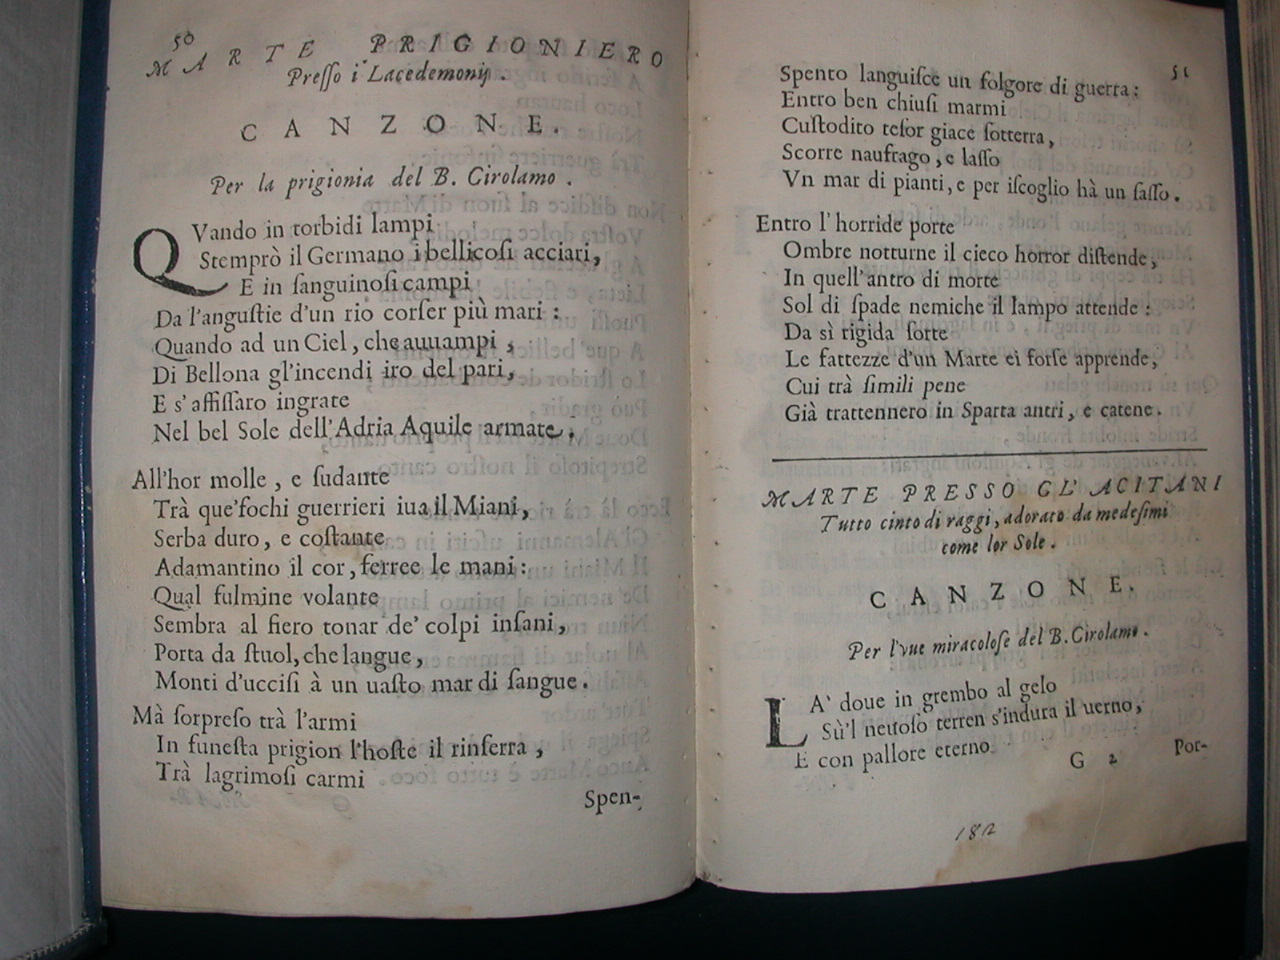 50
MARTE PRIGIONIERO
Preſſo i Lacedemonij .
CANZONE.
Per la prigionia del B. Girolamo .
QVando in torbidi lampi
Stemprò il Germano i bellicoſi acciari,
E in ſanguinoſi campi
Da l'anguſtie d'un rio corſer più mari :
Quando ad un Ciel, che auuampi ,
Di Bellona gl'incendi iro del pari,
E s'affiſſaro ingrate
Nel bel Sole dell'Adria Aquile armate.
All'hor molle , e ſudante
Trà que'fochi guerrieri iua il Miani,
Serba duro, e coſtante
Adamantino il cor, ferree le mani :
Qual fulmine volante
Sembra al fiero tonar de' colpi inſani,
Porta da ſtuol, che langue,
Monti d'ucciſi à un uaſto mar di ſangue.
Mà ſorpreſo trà l'armi
In funeſta prigion l'hoſte il rinſerra ,
Trà lagrimoſi carmi
Spen-
51
Spento languiſce un folgore di guerra :
Entro ben chiuſi marmi
Cuſtodito teſor giace ſotterra,
Scorre naufrago, e laſſo
Vn mar di pianti, e per iſcoglio hà un ſaſſo.
Entro l'horride porte
Ombre notturne il cieco horror diſtende,
In quell'antro di morte
Sol di ſpade nemiche il lampo attende :
Da sì rigida ſorte
Le fattezze d'un Marte ei forſe apprende,
Cui trà ſimili pene
Già trattennero in Sparta antri, e catene.
MARTE PRESSO GL'ACITANI
Tutto cinto di raggi, adorato da medeſimi
come lor Sole.
CANZONE.
Per l'vue miracoloſe del B. Girolamo.
LA' doue in grembo al gelo
Sù'l neuoſo terren s'indura il uerno,
E con pallore eterno
G 2
Por-
182